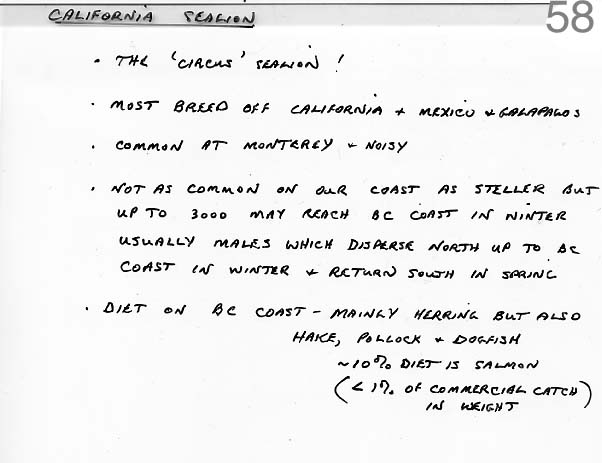 58
CALIFORNIA SEALION
• THE 'CIRCUS' SEALION !
• MOST BREED OFF CALIFORNIA + MEXICO + GALAPAGOS
• COMMON AT MONTEREY + NOISY
• NOT AS COMMON ON OUR COAST AS STELLER BUT
UP TO 3000 MAY REACH BC COAST IN WINTER
USUALLY MALES WHICH DISPERSE NORTH UP TO BC
COAST IN WINTER + RETURN SOUTH IN SPRING
• DIET ON BC COAST - MAINLY HERRING BUT ALSO
HAKE, POLLOCK + DOGFISH
~10% DIET IS SALMON
(<1% OF COMMERCIAL CATCH)
IN WEIGHT